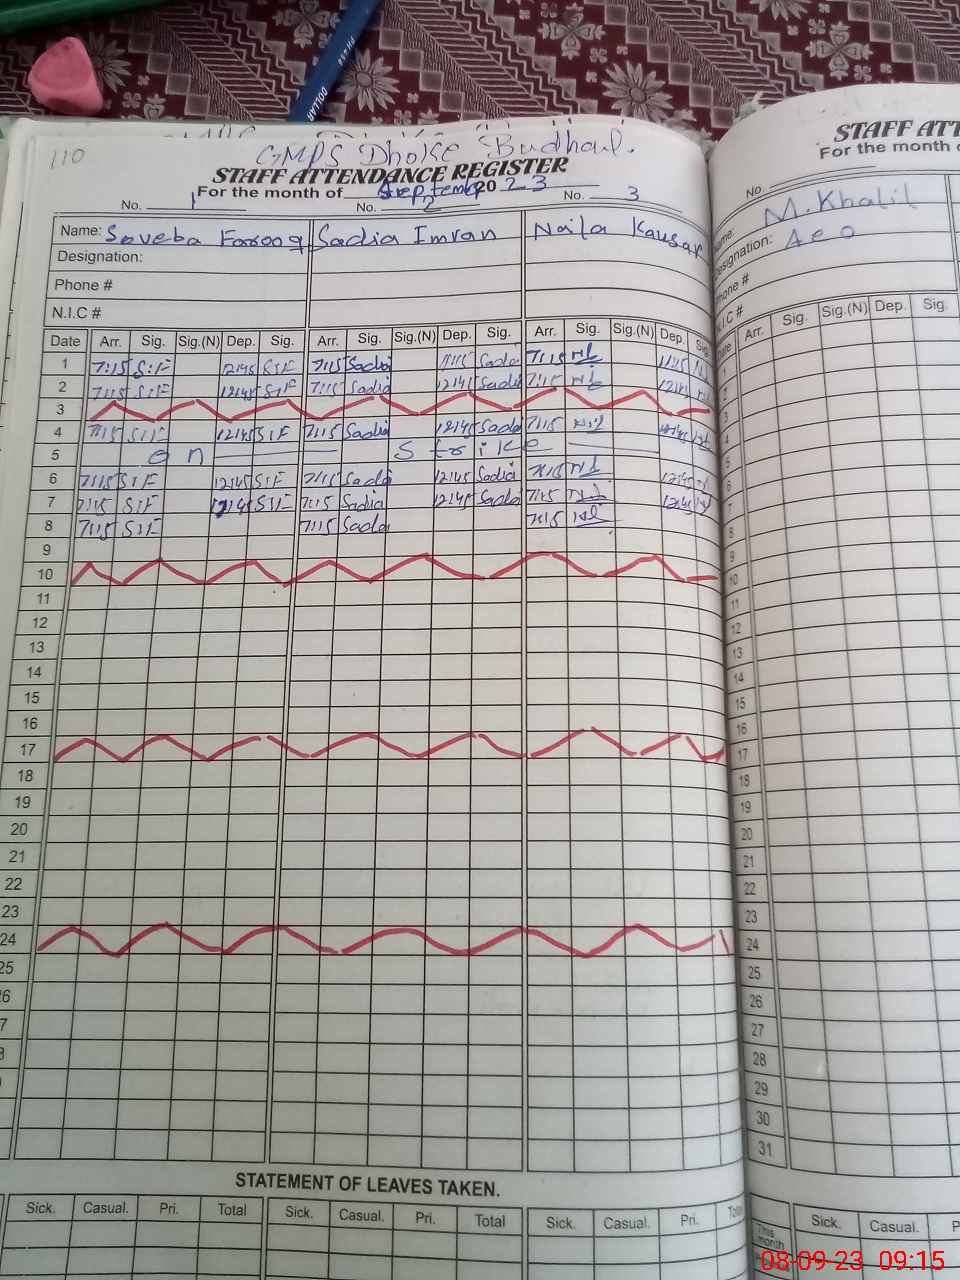 110
GMPS Dhoke Budhal.
STAFF ATTENDANCE REGISTER
For the month of September 2023
No. 1 No. 2 No. 3
Name: Soveba Farooq Sadia Imran Naila Kausar
Designation:
Phone #
N.I.C #
Date Arr. Sig. Sig.(N) Dep. Sig. Arr. Sig. Sig.(N) Dep. Sig. Arr. Sig. Sig.(N) Dep. Sig.
1 7:15 S.F 12:45 S.F 7:15 Sadia 11:15 Sadia 7:15 11:15
2 7:15 S.F 12:45 S.F 7:15 Sadia 12:45 Sadia 7:15 12:45
3
4 7:15 S.F 12:45 S.F 7:15 Sadia 12:45 Sadia 7:15 12:45
5 on Strike
6 7:15 S.F 12:45 S.F 7:15 Sadia 12:45 Sadia 7:15 12:45
7 7:15 S.F 12:45 S.F 7:15 Sadia 12:45 Sadia 7:15 12:45
8 7:15 S.F 7:15 Sadia 7:15
9
10
11
12
13
14
15
16
17
18
19
20
21
22
23
24
25
26
7
8
STATEMENT OF LEAVES TAKEN.
Sick. Casual. Pri. Total Sick. Casual. Pri. Total Sick. Casual. Pri. Total
STAFF ATT
For the month o
No.
Name: M. Khalil
Designation: AEO
Phone #
N.I.C #
Date Arr. Sig. Sig.(N) Dep. Sig.
1
2
3
4
5
6
7
8
9
10
11
12
13
14
15
16
17
18
19
20
21
22
23
24
25
26
27
28
29
30
31
This month
Sick. Casual. P
DOLLAR
08-09-23 09:15